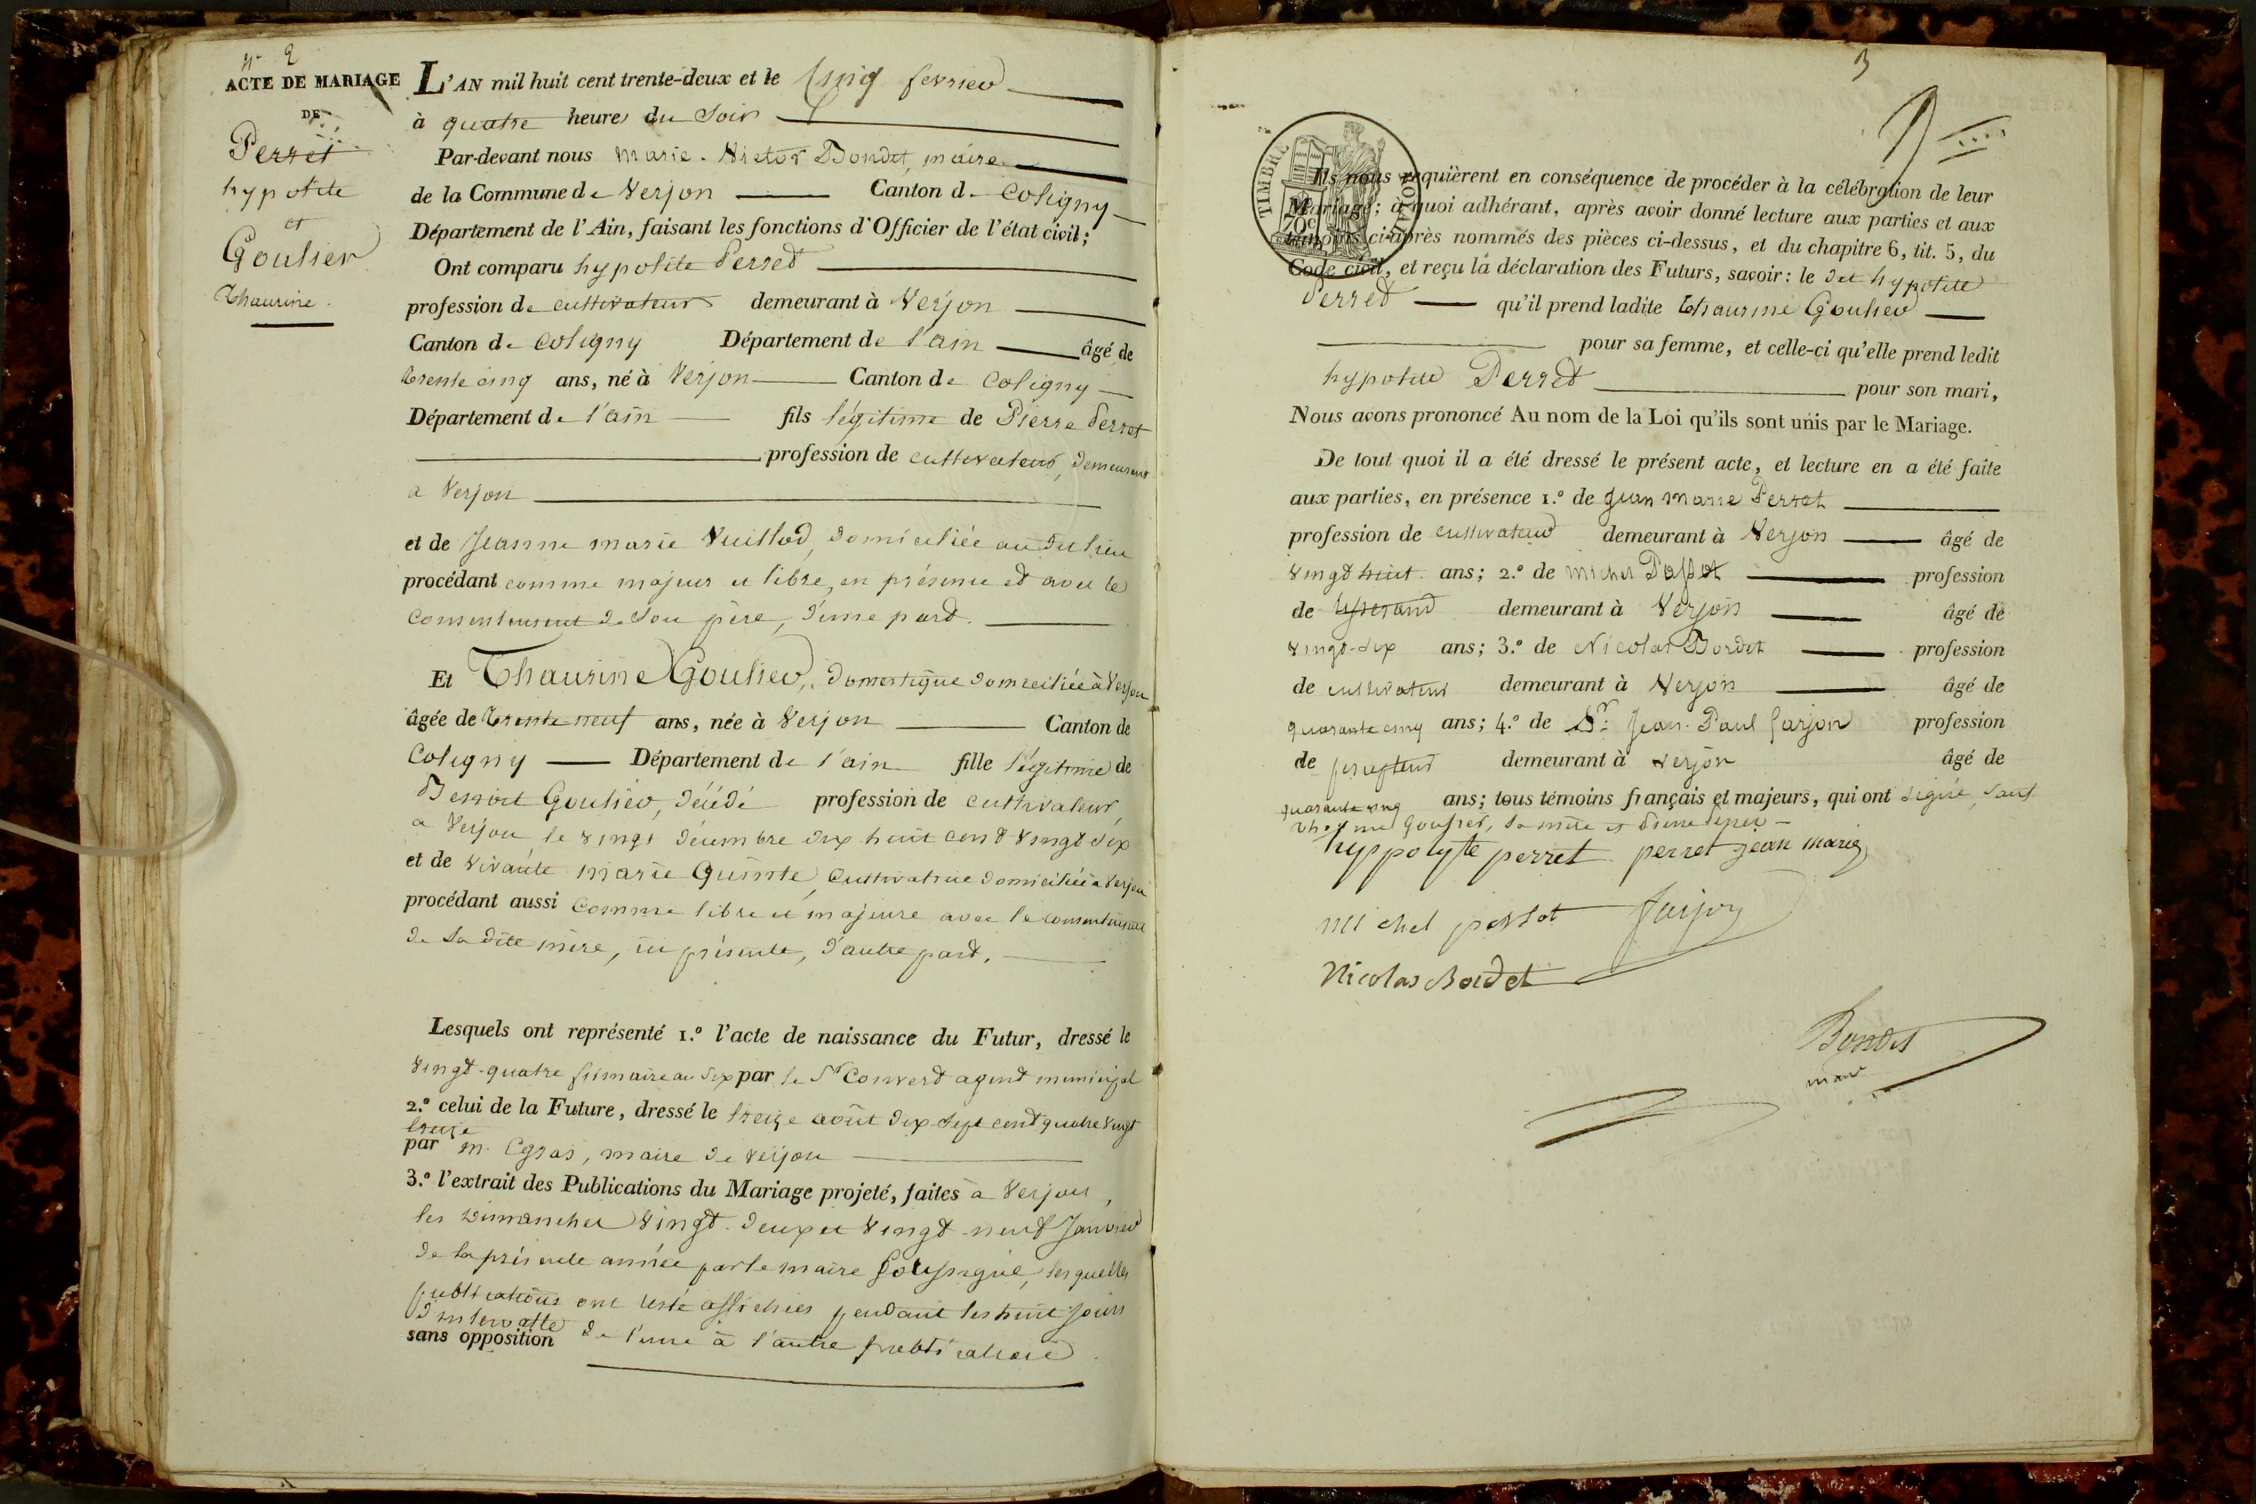 N° 2
ACTE DE MARIAGE
DE
Perret
hypolite
et
Goulier
Thaurine.
L'AN mil huit cent trente-deux et le Cinq fevrier
à quatre heures du Soir
Par-devant nous Marie-Victor Bondet, maire
de la Commune de Verjon Canton de Coligny
Département de l'Ain, faisant les fonctions d'Officier de l'état civil;
Ont comparu hypolite Perret
profession de cultivateur demeurant à Verjon
Canton de Coligny Département de l'ain âgé de
trente cinq ans, né à Verjon Canton de Coligny
Département de l'ain fils légitime de Pierre Perret
profession de cultivateur, demeurant
a Verjon
et de Jeanne marie Vuillod, domiciliée au dit lieu
procédant comme majeur et libre, en présence et avec le
consentement de Son père, d'une part.
Et Thaurine Goulier, domestique domiciliée à Verjon
âgée de trente neuf ans, née à Verjon Canton de
Coligny Département de l'ain fille légitime de
Benoit Goulier, décédé profession de cultivateur,
a Verjon le vingt décembre dix huit cent vingt six
et de vivante marie Quinte, Cultivatrice domiciliée à Verjon
procédant aussi comme libre et majeure avec le consentement
de Sa dite mère, ici présente, d'autre part.
Lesquels ont représenté 1.° l'acte de naissance du Futur, dressé le
vingt-quatre frimaire an Six par le Sr Convert agent municipal
2.° celui de la Future, dressé le treize août dix Sept cent quatre vingt
treize
par m. Egras, maire de Verjon
3.° l'extrait des Publications du Mariage projeté, faites à Verjon,
les Dimanches vingt-deux et vingt-neuf Janvier
de la présente année par le maire Soussigné, lesquelles
publications ont resté affichées pendant les huit jours
d'intervalle
sans opposition de l'une à l'autre publication.
3
TIMBRE ROYAL
70c
Ils nous requièrent en conséquence de procéder à la célébration de leur
Mariage; à quoi adhérant, après avoir donné lecture aux parties et aux
témoins ci-après nommés des pièces ci-dessus, et du chapitre 6, tit. 5, du
Code civil, et reçu la déclaration des Futurs, savoir: le dit hypolite
Perret qu'il prend ladite Thaurine Goulier
pour sa femme, et celle-ci qu'elle prend ledit
hypolite Perret pour son mari,
Nous avons prononcé Au nom de la Loi qu'ils sont unis par le Mariage.
De tout quoi il a été dressé le présent acte, et lecture en a été faite
aux parties, en présence 1.° de Jean marie Perret
profession de cultivateur demeurant à Verjon âgé de
vingt huit ans; 2.° de michel profession
de tisserand demeurant à Verjon âgé de
vingt-six ans; 3.° de Nicolas Bordet profession
de cultivateur demeurant à Verjon âgé de
quarante cinq ans; 4.° de Sr. Jean-Paul farjon profession
de percepteur demeurant à verjon âgé de
quarante cinq ans; tous témoins français et majeurs, qui ont signé, sauf
Thaurine Goulier, Sa mère et Pierre Perret
hyppolyte perret perret jean marie
michel farjon
Nicolas Bordet
Bondet
maire